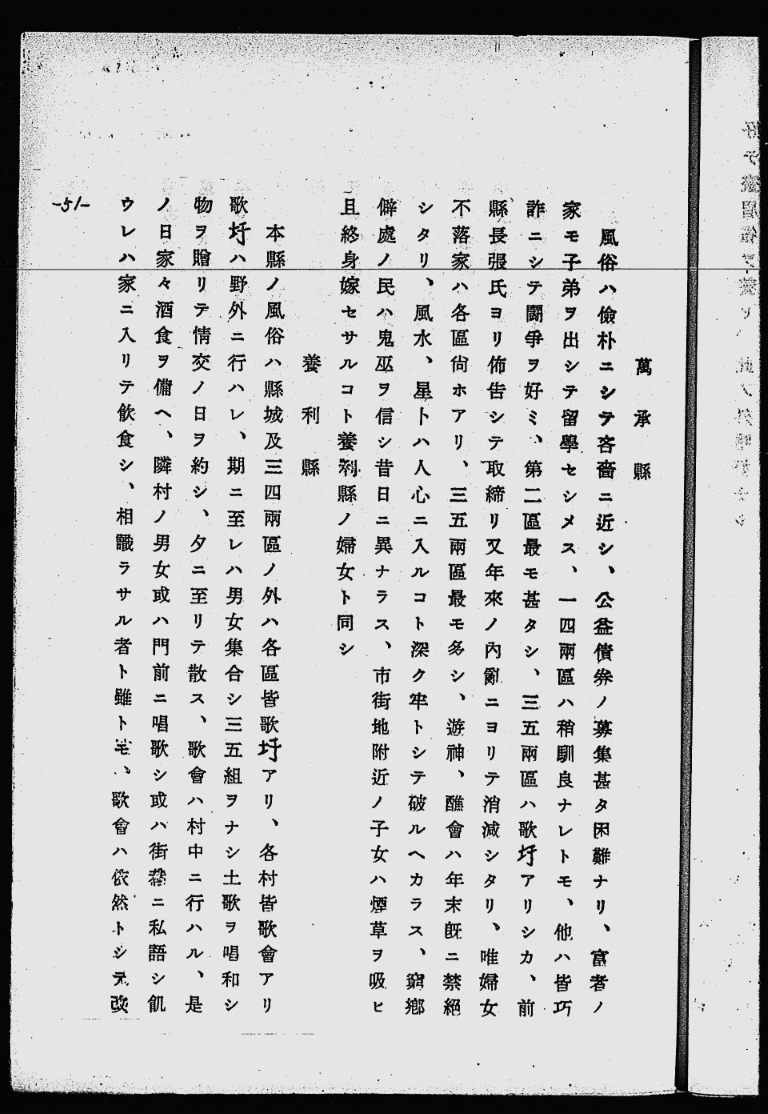 萬承縣
風俗ハ儉朴ニシテ吝嗇ニ近シ、公益債券ノ募集甚タ困難ナリ、富者ノ
家モ子弟ヲ出シテ留學セシメス、一四兩區ハ稍馴良ナレトモ、他ハ皆巧
詐ニシテ鬪爭ヲ好ミ、第二區最モ甚タシ、三五兩區ハ歌圩アリシカ、前
縣長張氏ヨリ佈吿シテ取締リ又年來ノ內亂ニヨリテ消滅シタリ、唯婦女
不落家ハ各區尙ホアリ、三五兩區最モ多シ、遊神、醮會ハ年末旣ニ禁絕
シタリ、風水、星卜ハ人心ニ入ルコト深ク牢トシテ破ルヘカラス、窮鄕
僻處ノ民ハ鬼巫ヲ信シ昔日ニ異ナラス、市街地附近ノ子女ハ煙草ヲ吸ヒ
且終身嫁セサルコト養利縣ノ婦女ト同シ
養利縣
本縣ノ風俗ハ縣城及三四兩區ノ外ハ各區皆歌圩アリ、各村皆歌會アリ
歌圩ハ野外ニ行ハレ、期ニ至レハ男女集合シ三五組ヲナシ土歌ヲ唱和シ
物ヲ贈リテ情交ノ日ヲ約シ、夕ニ至リテ散ス、歌會ハ村中ニ行ハル、是
ノ日家々酒食ヲ備ヘ、隣村ノ男女或ハ門前ニ唱歌シ或ハ街巷ニ私語シ飢
ウレハ家ニ入リテ飮食シ、相識ラサル者ト雖トモ、歌會ハ依然トシテ改
-51-